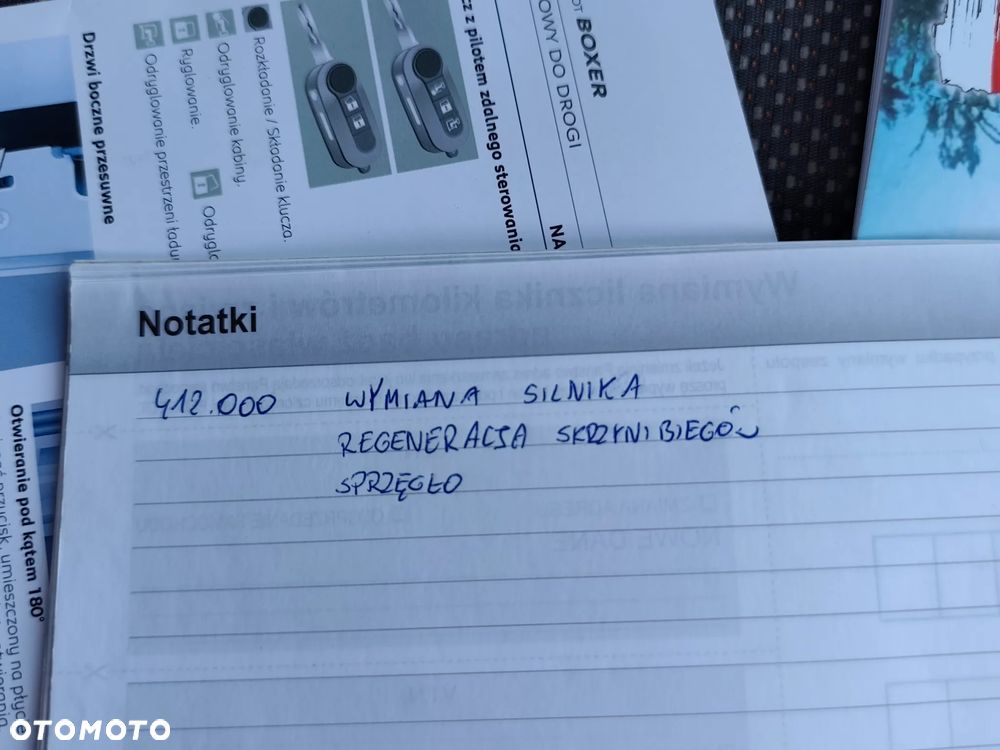 OT BOXER
OWY DO DROGI
NA
cz z pilotem zdalnego sterowania
Rozkładanie / Składanie klucza.
Odryglowanie kabiny.
Ryglowanie.
Odryglowanie przestrzeni ładu
Odrygla
Drzwi boczne przesuwne
Otwieranie pod kątem 180°
przycisk, umieszczony na płycie
Wymiana licznika kilometrów i
Notatki
412.000 WYMIANA SILNIKA
REGENERACJA SKRZYNI BIEGÓW
SPRZĘGŁO
NOWE DANE
OTOMOTO